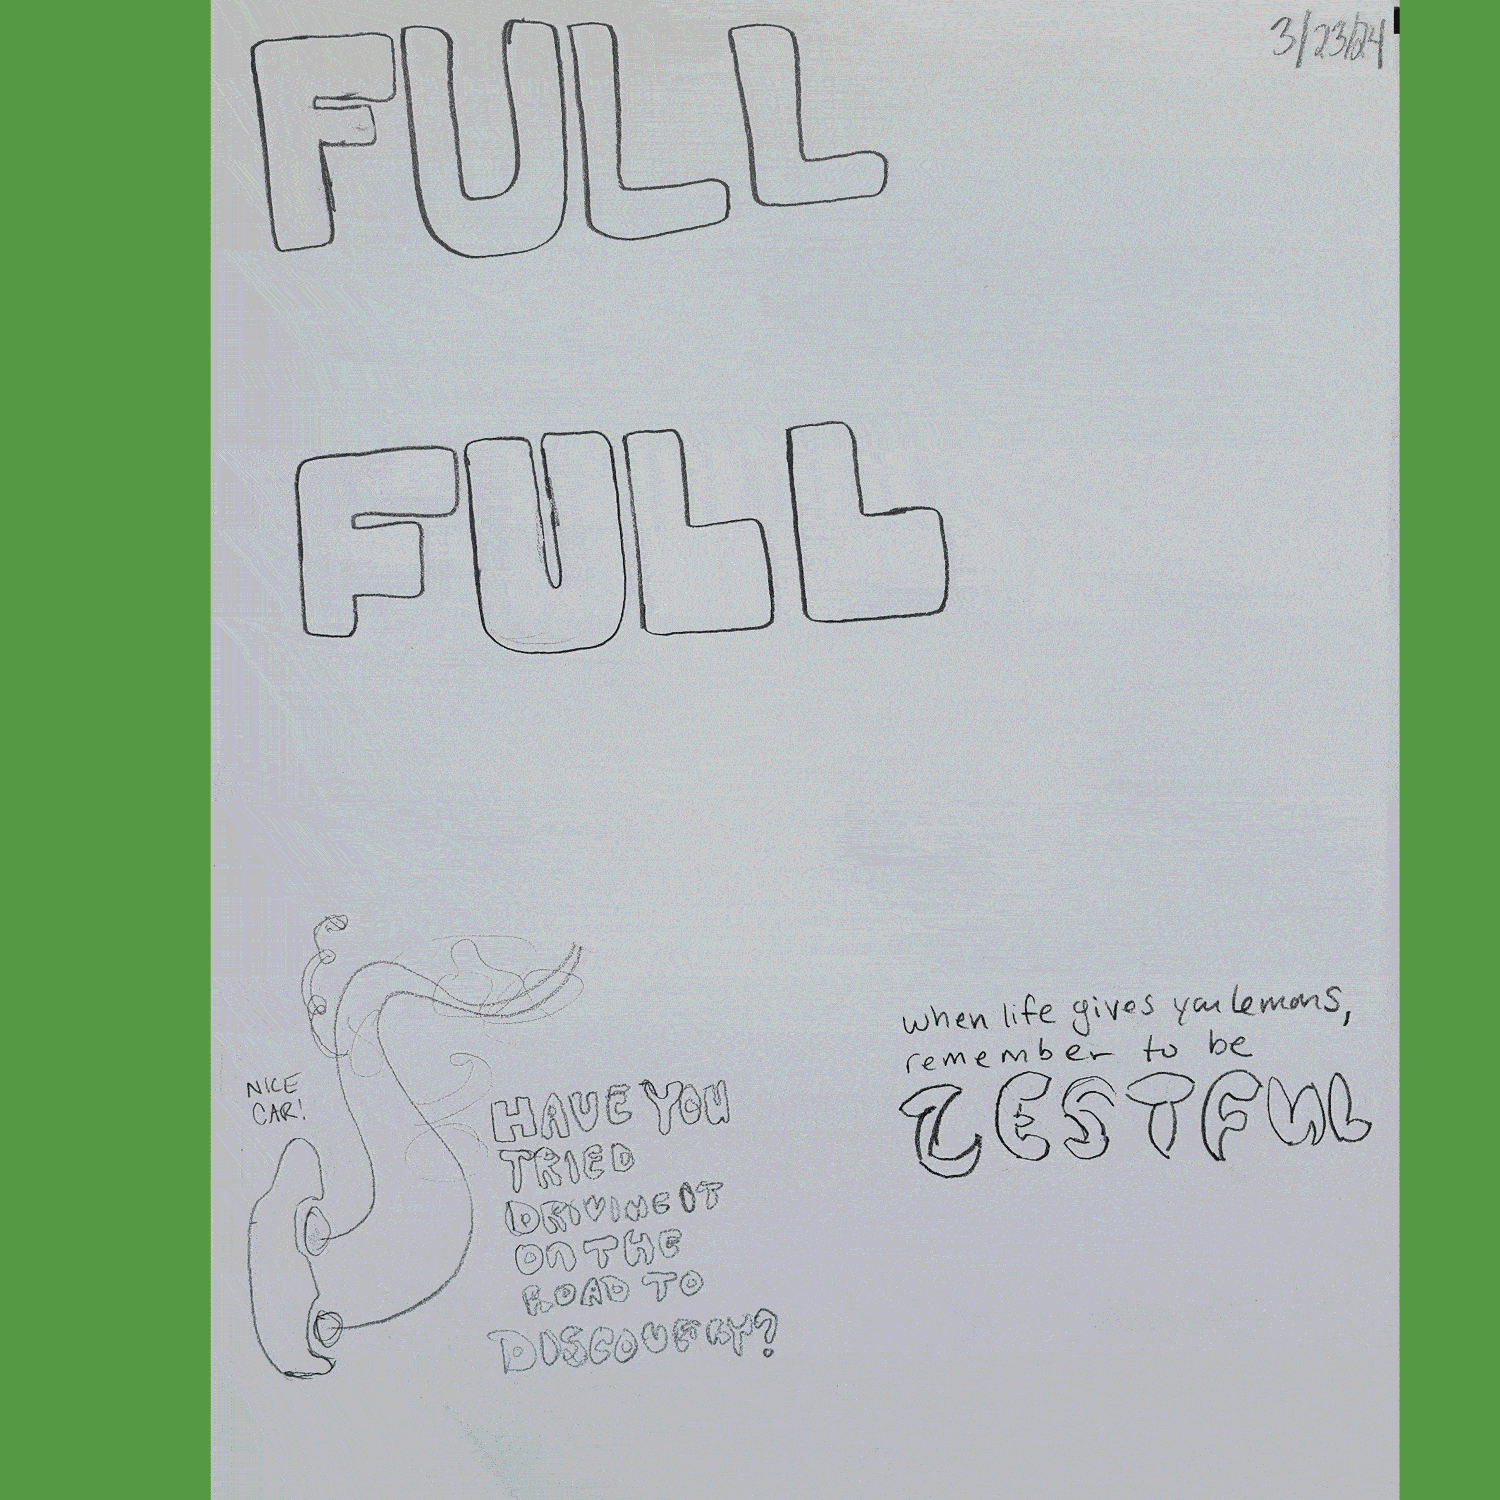 3/23/24
FULL
FULL
when life gives you lemons,
remember to be
ZESTFUL
NICE
CAR!
HAVE YOU
TRIED
DRIVING IT
ON THE
ROAD TO
DISCOVERY?